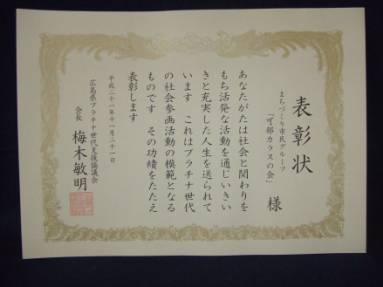 表彰状
まちづくり市民グループ
「可部カラスの会」 様
あなたがたは社会と関わりを
もち活発な活動を通じいきい
きと充実した人生を送られて
います これはプラチナ世代
の社会参画活動の模範となる
ものです その功績をたたえ
表彰します
平成二十一年十一月二十一日
広島県プラチナ世代支援協議会
会長 梅木敏明